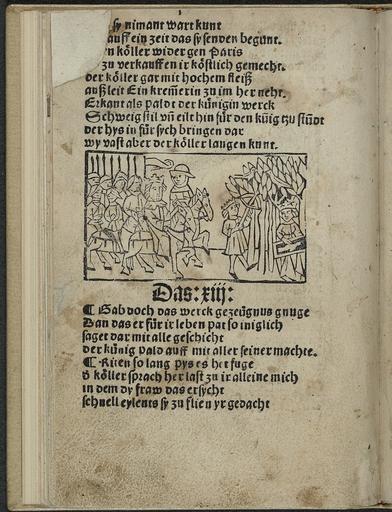 sy nimant wart kunt
auff ein zeit das sy senden begunt.
n köller wider gen Paris
zu verkauffen ir köstlich gemecht.
der köller gar mit hochem fleiß
auß leit Ein kremerin zu im her neht.
Erkant als paldt der künigin werck
Schweig stil vñ eilt hin für den küig tzu stũdt
der hys in für sych bringen dar
wy vast aber der köller laugen kunt.
Das: xiij:
¶ Gab doch das werck gezeügnus gnuge
Dan das er für ir leben pat so iniglich
saget dar mit alle geschicht
der künig pald auff mit aller seiner machte.
¶ Riten so lang pys es het fuge
d̛ köller sprach her last zu ir alleine mich
in dem dy fraw das ersycht
schnell eylents sy zu flien yr gedacht